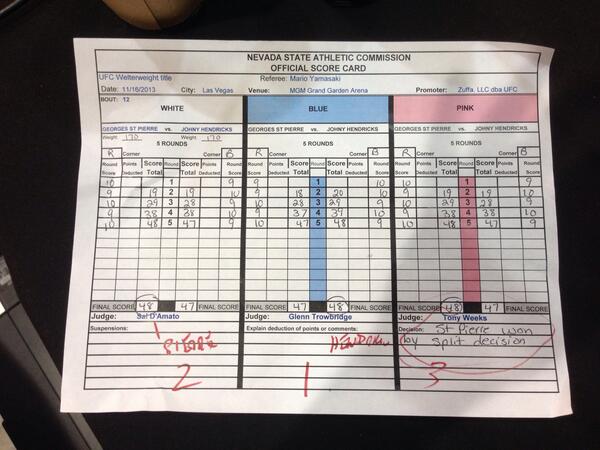 NEVADA STATE ATHLETIC COMMISSION
OFFICIAL SCORE CARD
UFC Welterweight title Referee: Mario Yamasaki
Date: 11/16/2013 City: Las Vegas Venue: MGM Grand Garden Arena Promoter: Zuffa, LLC dba UFC
BOUT: 12
WHITE BLUE PINK
GEORGES ST PIERRE vs. JOHNY HENDRICKS GEORGES ST PIERRE vs. JOHNY HENDRICKS GEORGES ST PIERRE vs. JOHNY HENDRICKS
Weight 170 Weight 170
5 ROUNDS 5 ROUNDS 5 ROUNDS
R Corner Corner B R Corner Corner B R Corner Corner B
Round Score Points Deducted Score Total Round Score Total Points Deducted Round Score Round Score Points Deducted Score Total Round Score Total Points Deducted Round Score Round Score Points Deducted Score Total Round Score Total Points Deducted Round Score
10 1 9 9 1 10 10 1 9
9 19 2 19 10 9 18 2 20 10 9 19 2 19 10
10 29 3 28 9 10 28 3 29 9 10 29 3 28 9
9 38 4 38 10 9 37 4 39 10 9 38 4 38 10
10 48 5 47 9 10 47 5 48 9 10 48 5 47 9
FINAL SCORE 48 47 FINAL SCORE FINAL SCORE 47 48 FINAL SCORE FINAL SCORE 48 47 FINAL SCORE
Judge: Sal D'Amato Judge: Glenn Trowbridge Judge: Tony Weeks
Suspensions: Explain deduction of points or comments: Decision: St Pierre won
by split decision
2 1 3